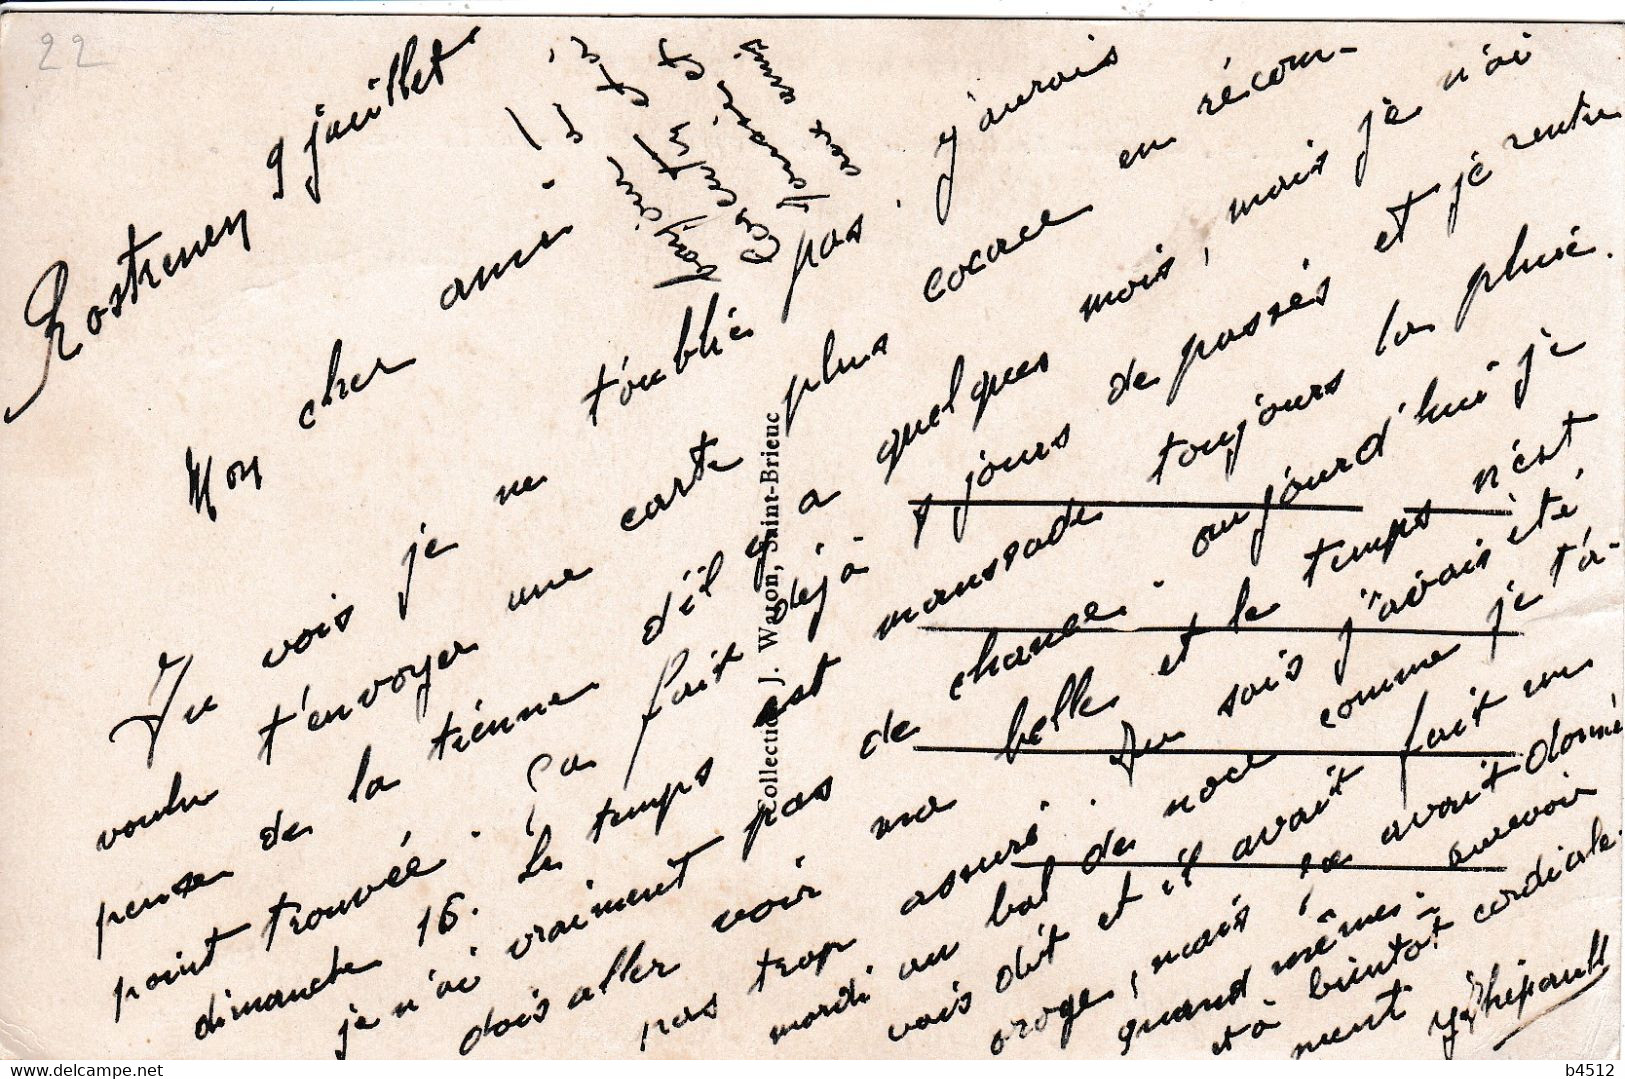 22
Rostrenen 9 juillet
Mon cher ami
Tu vois je ne t'oublie pas. j'aurais
voulu t'envoyer une carte plus cocace en récom-
pense de la tienne d'il y a quelques mois, mais je n'ai
point trouvée. ça fait déjà 8 jours de passés et je rentre
dimanche 16. Le temps est maussade toujours la pluie.
je n'ai vraiment pas de chance. aujourd'hui je
dois aller voir ma belle et le temps n'est
pas trop assuré. Tu sais j'avais été
mardi au bal de noce comme je t'a-
vais dit et il avait fait un
orage, mais ça avait donné
quand même. aurevoir
et à bientôt cordiale-
ment
aux amis
Collection J. Waron, Saint-Brieuc
b4512